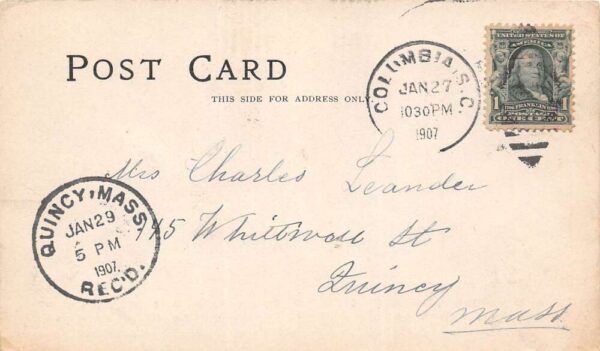 POST CARD
THIS SIDE FOR ADDRESS ONLY
COLUMBIA, S.C.
JAN 27
1030 PM
1907
UNITED STATES OF AMERICA
1 FRANKLIN 1
POSTAGE
ONE CENT
Mrs Charles Leander
145 Whitwall St
Quincy
Mass
QUINCY, MASS.
JAN 29
5 PM
1907
REC'D.